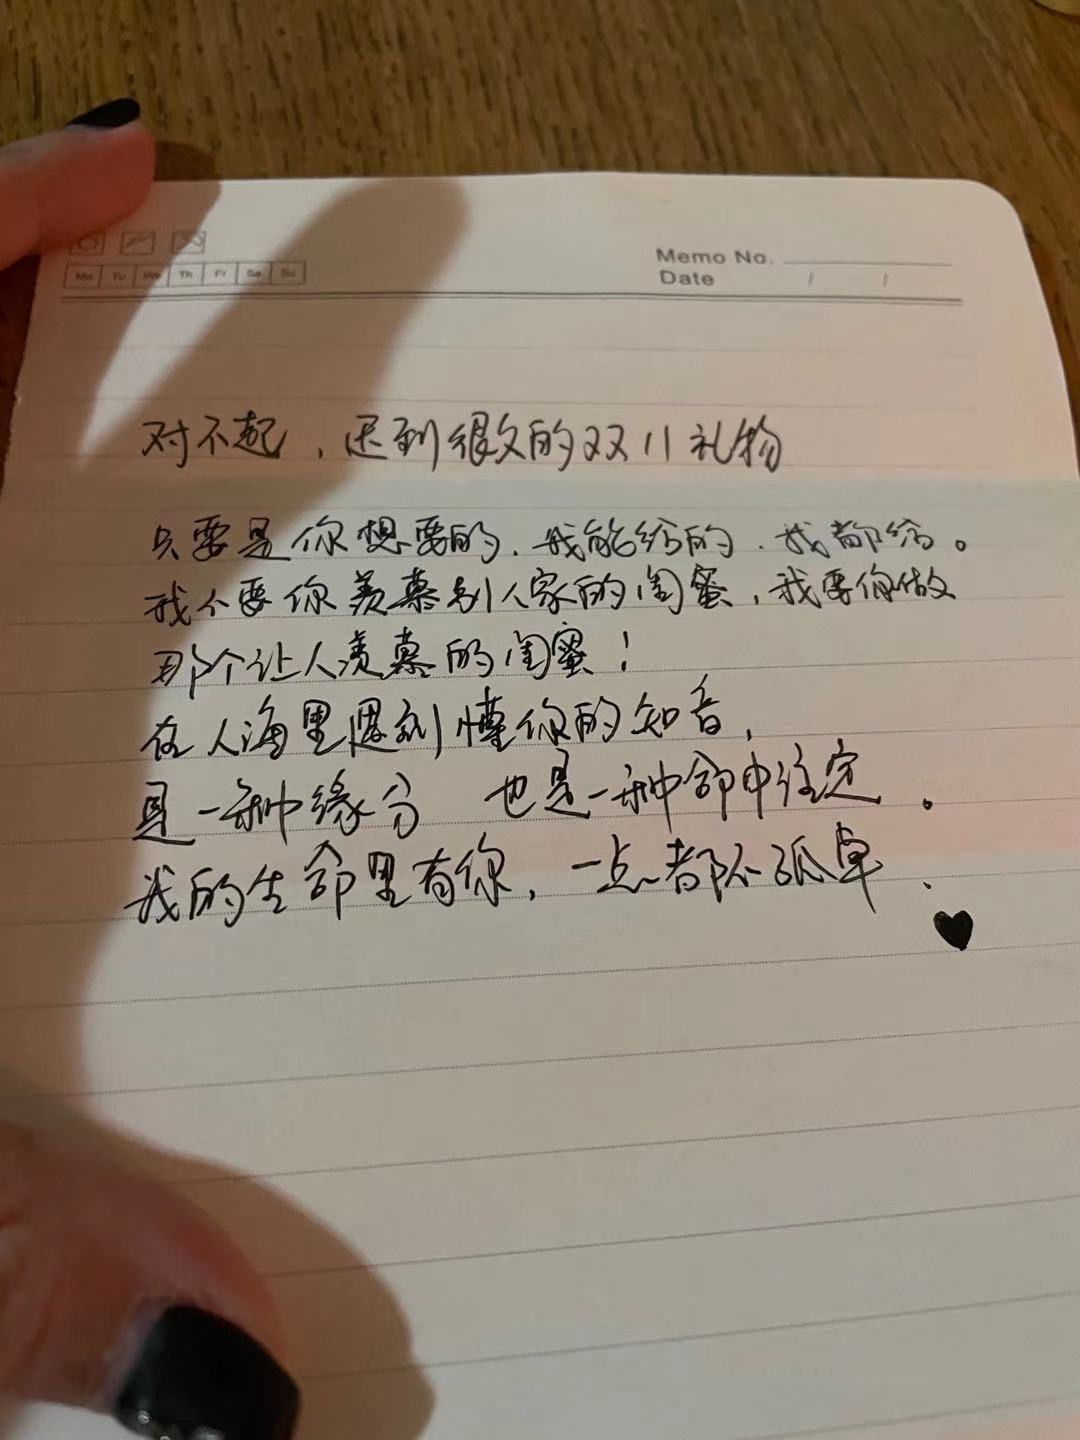 Memo No.
Mo Tu We Th Fr Sa Su
Date / /
对不起，迟到很久的双11礼物
只要是你想要的，我能给的，我都给。
我不要你羡慕别人家的闺蜜，我要你做
那个让人羡慕的闺蜜！
在人海里遇到懂你的知音，
是一种缘分 也是一种命中注定。
我的生命里有你，一点都不孤单、